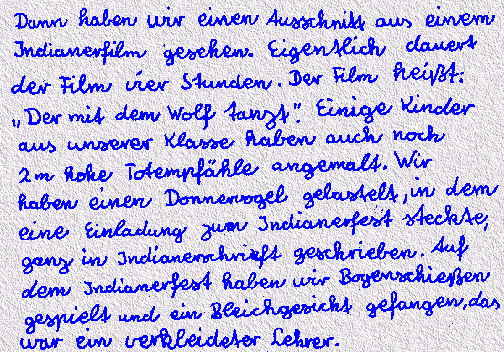 Dann haben wir einen Ausschnitt aus einem
Indianerfilm gesehen. Eigentlich dauert
der Film vier Stunden. Der Film heißt:
„Der mit dem Wolf tanzt“. Einige Kinder
aus unserer Klasse haben auch noch
2m hohe Totempfähle angemalt. Wir
haben einen Donnervogel gebastelt, in dem
eine Einladung zum Indianerfest steckte,
ganz in Indianerschrift geschrieben. Auf
dem Indianerfest haben wir Bogenschießen
gespielt und ein Bleichgesicht gefangen, das
war ein verkleideter Lehrer.